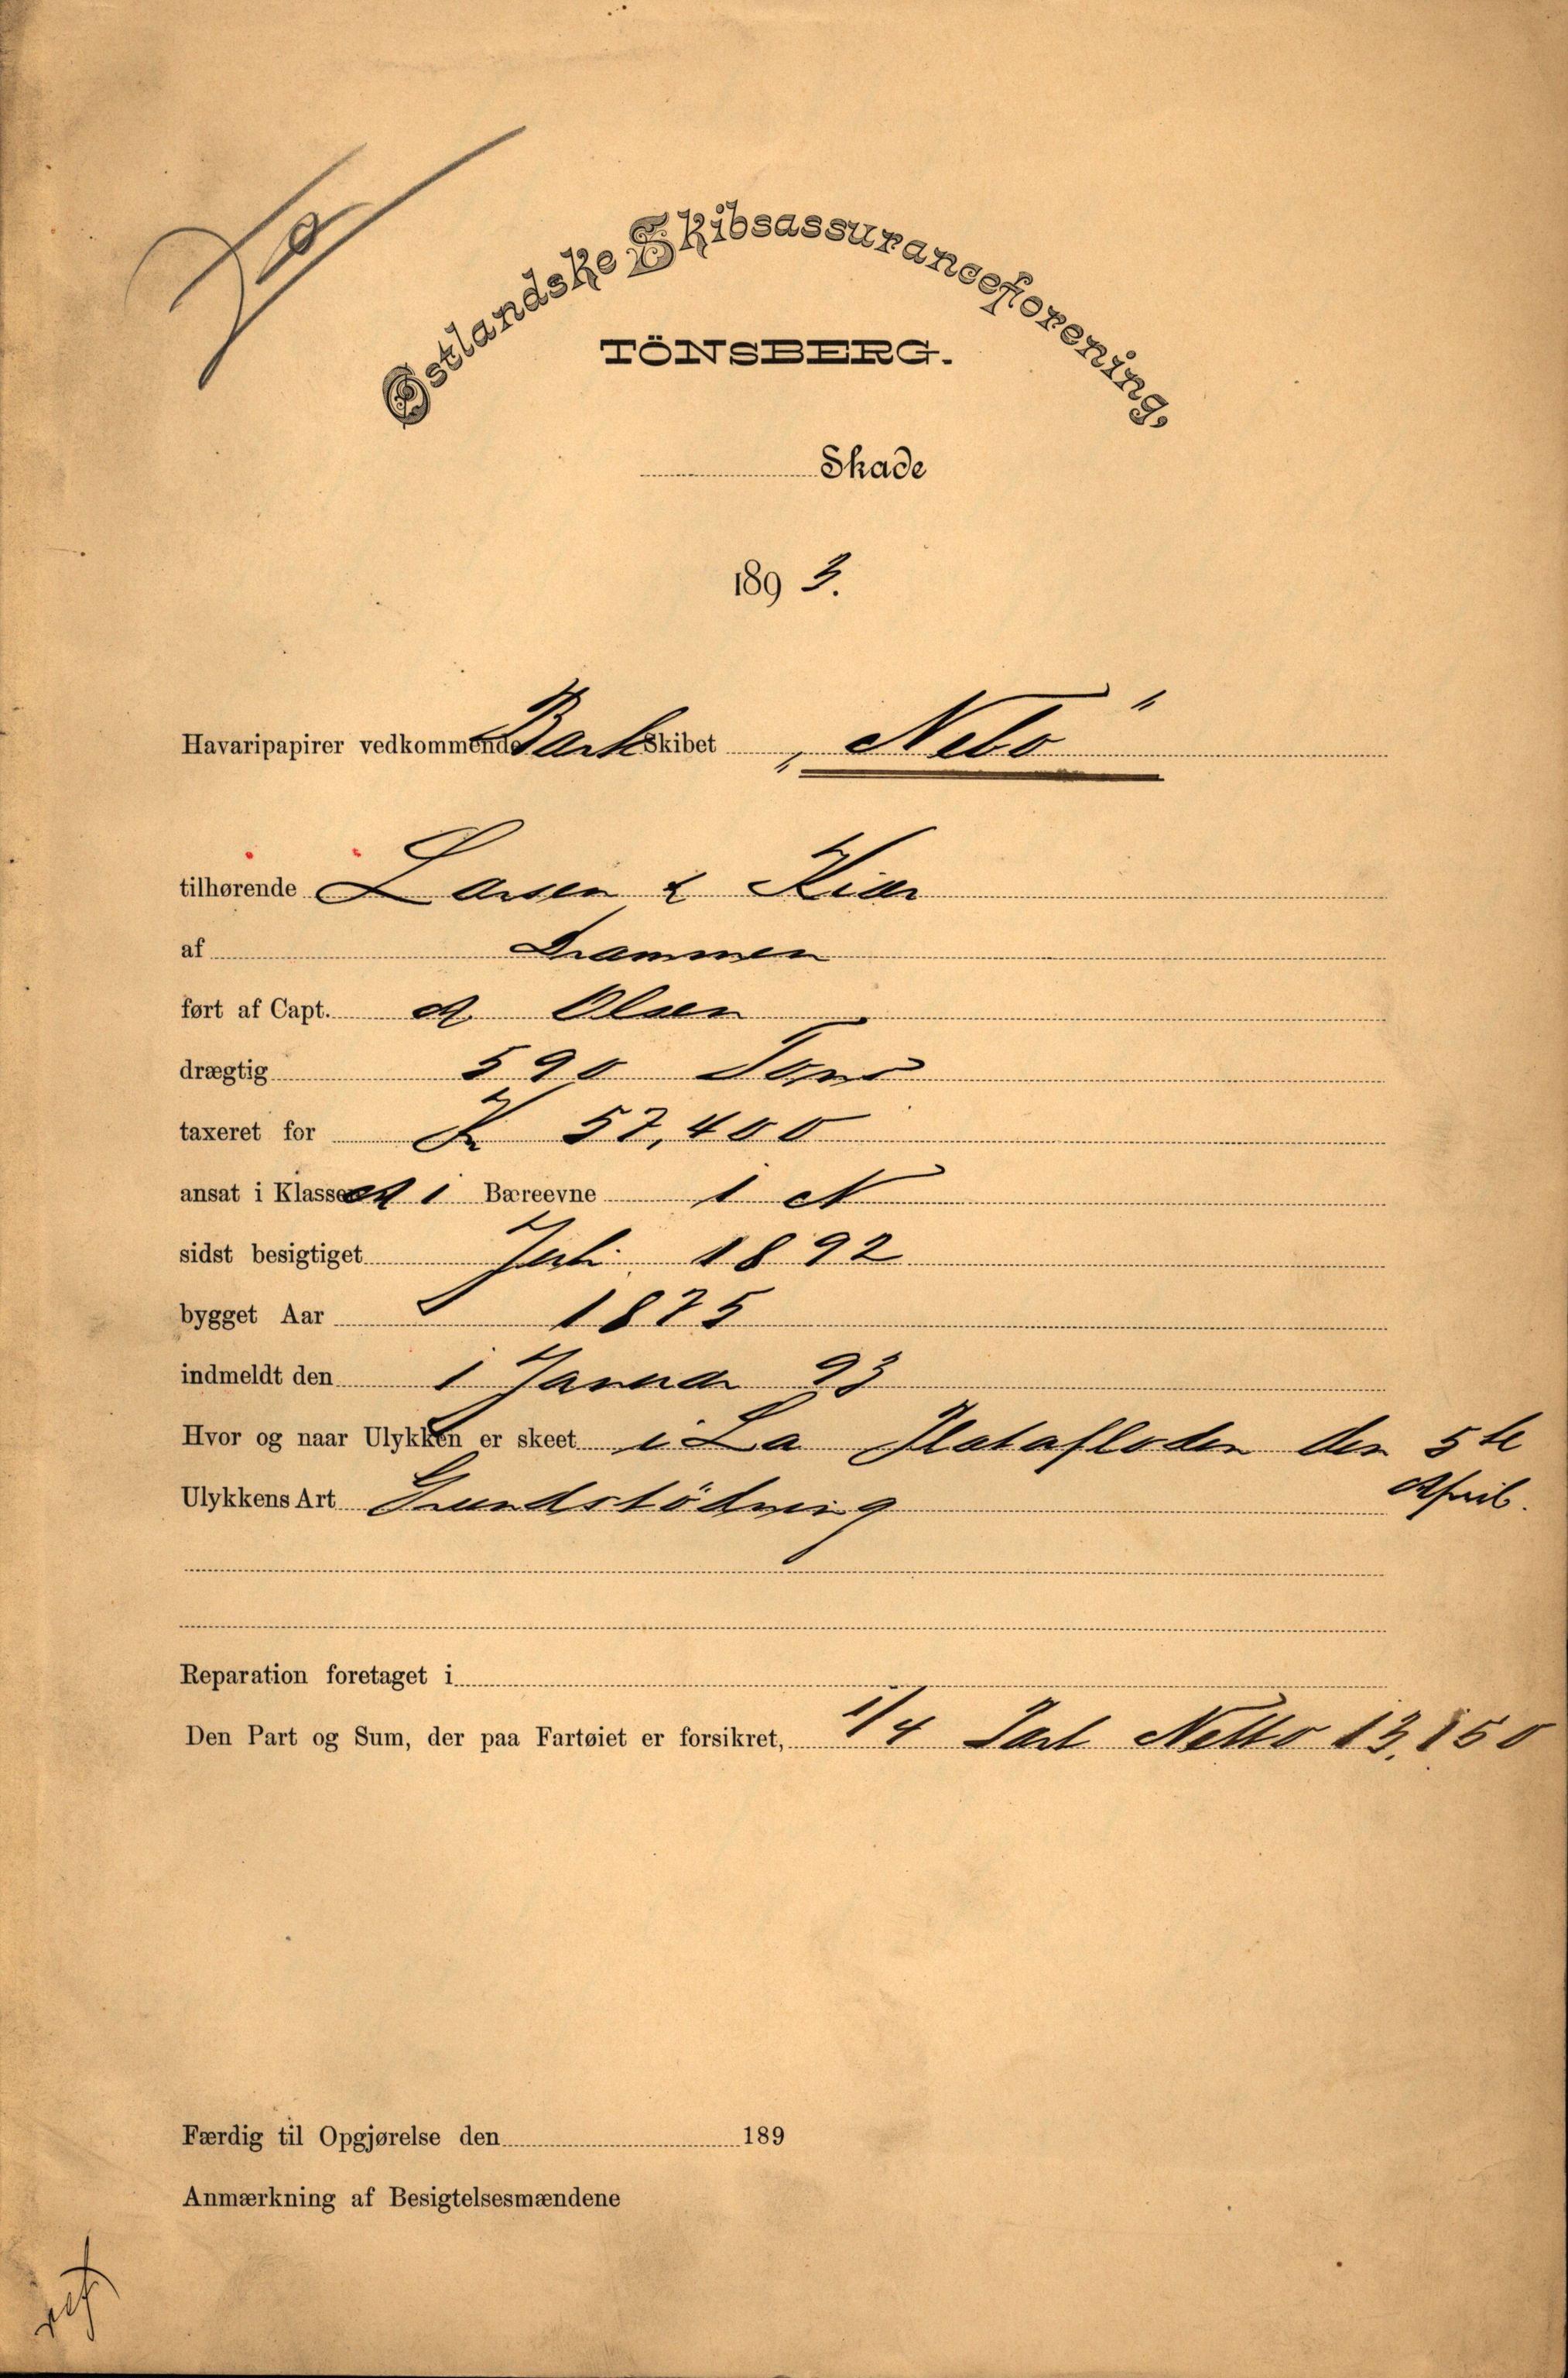 Østlandske Skibsassuranceforening,
TÖNSBERG.
Skade
1893.
Havaripapirer vedkommende Bark Skibet „Nebo"
tilhørende Larsen & Kiær
af Drammen
ført af Capt. A Olsen
drægtig 590 Tons
taxeret for Kr 57,400
ansat i Klasse A 1 Bæreevne 1 N
sidst besigtiget Juli 1892
bygget Aar 1875
indmeldt den 1 Januar 93
Hvor og naar Ulykken er skeet i La Platafloden den 5te
April.
Ulykkens Art Grundstödning
Reparation foretaget i
Den Part og Sum, der paa Fartøiet er forsikret, 1/4 Part Netto 13,150
Færdig til Opgjørelse den 189
Anmærkning af Besigtelsesmændene